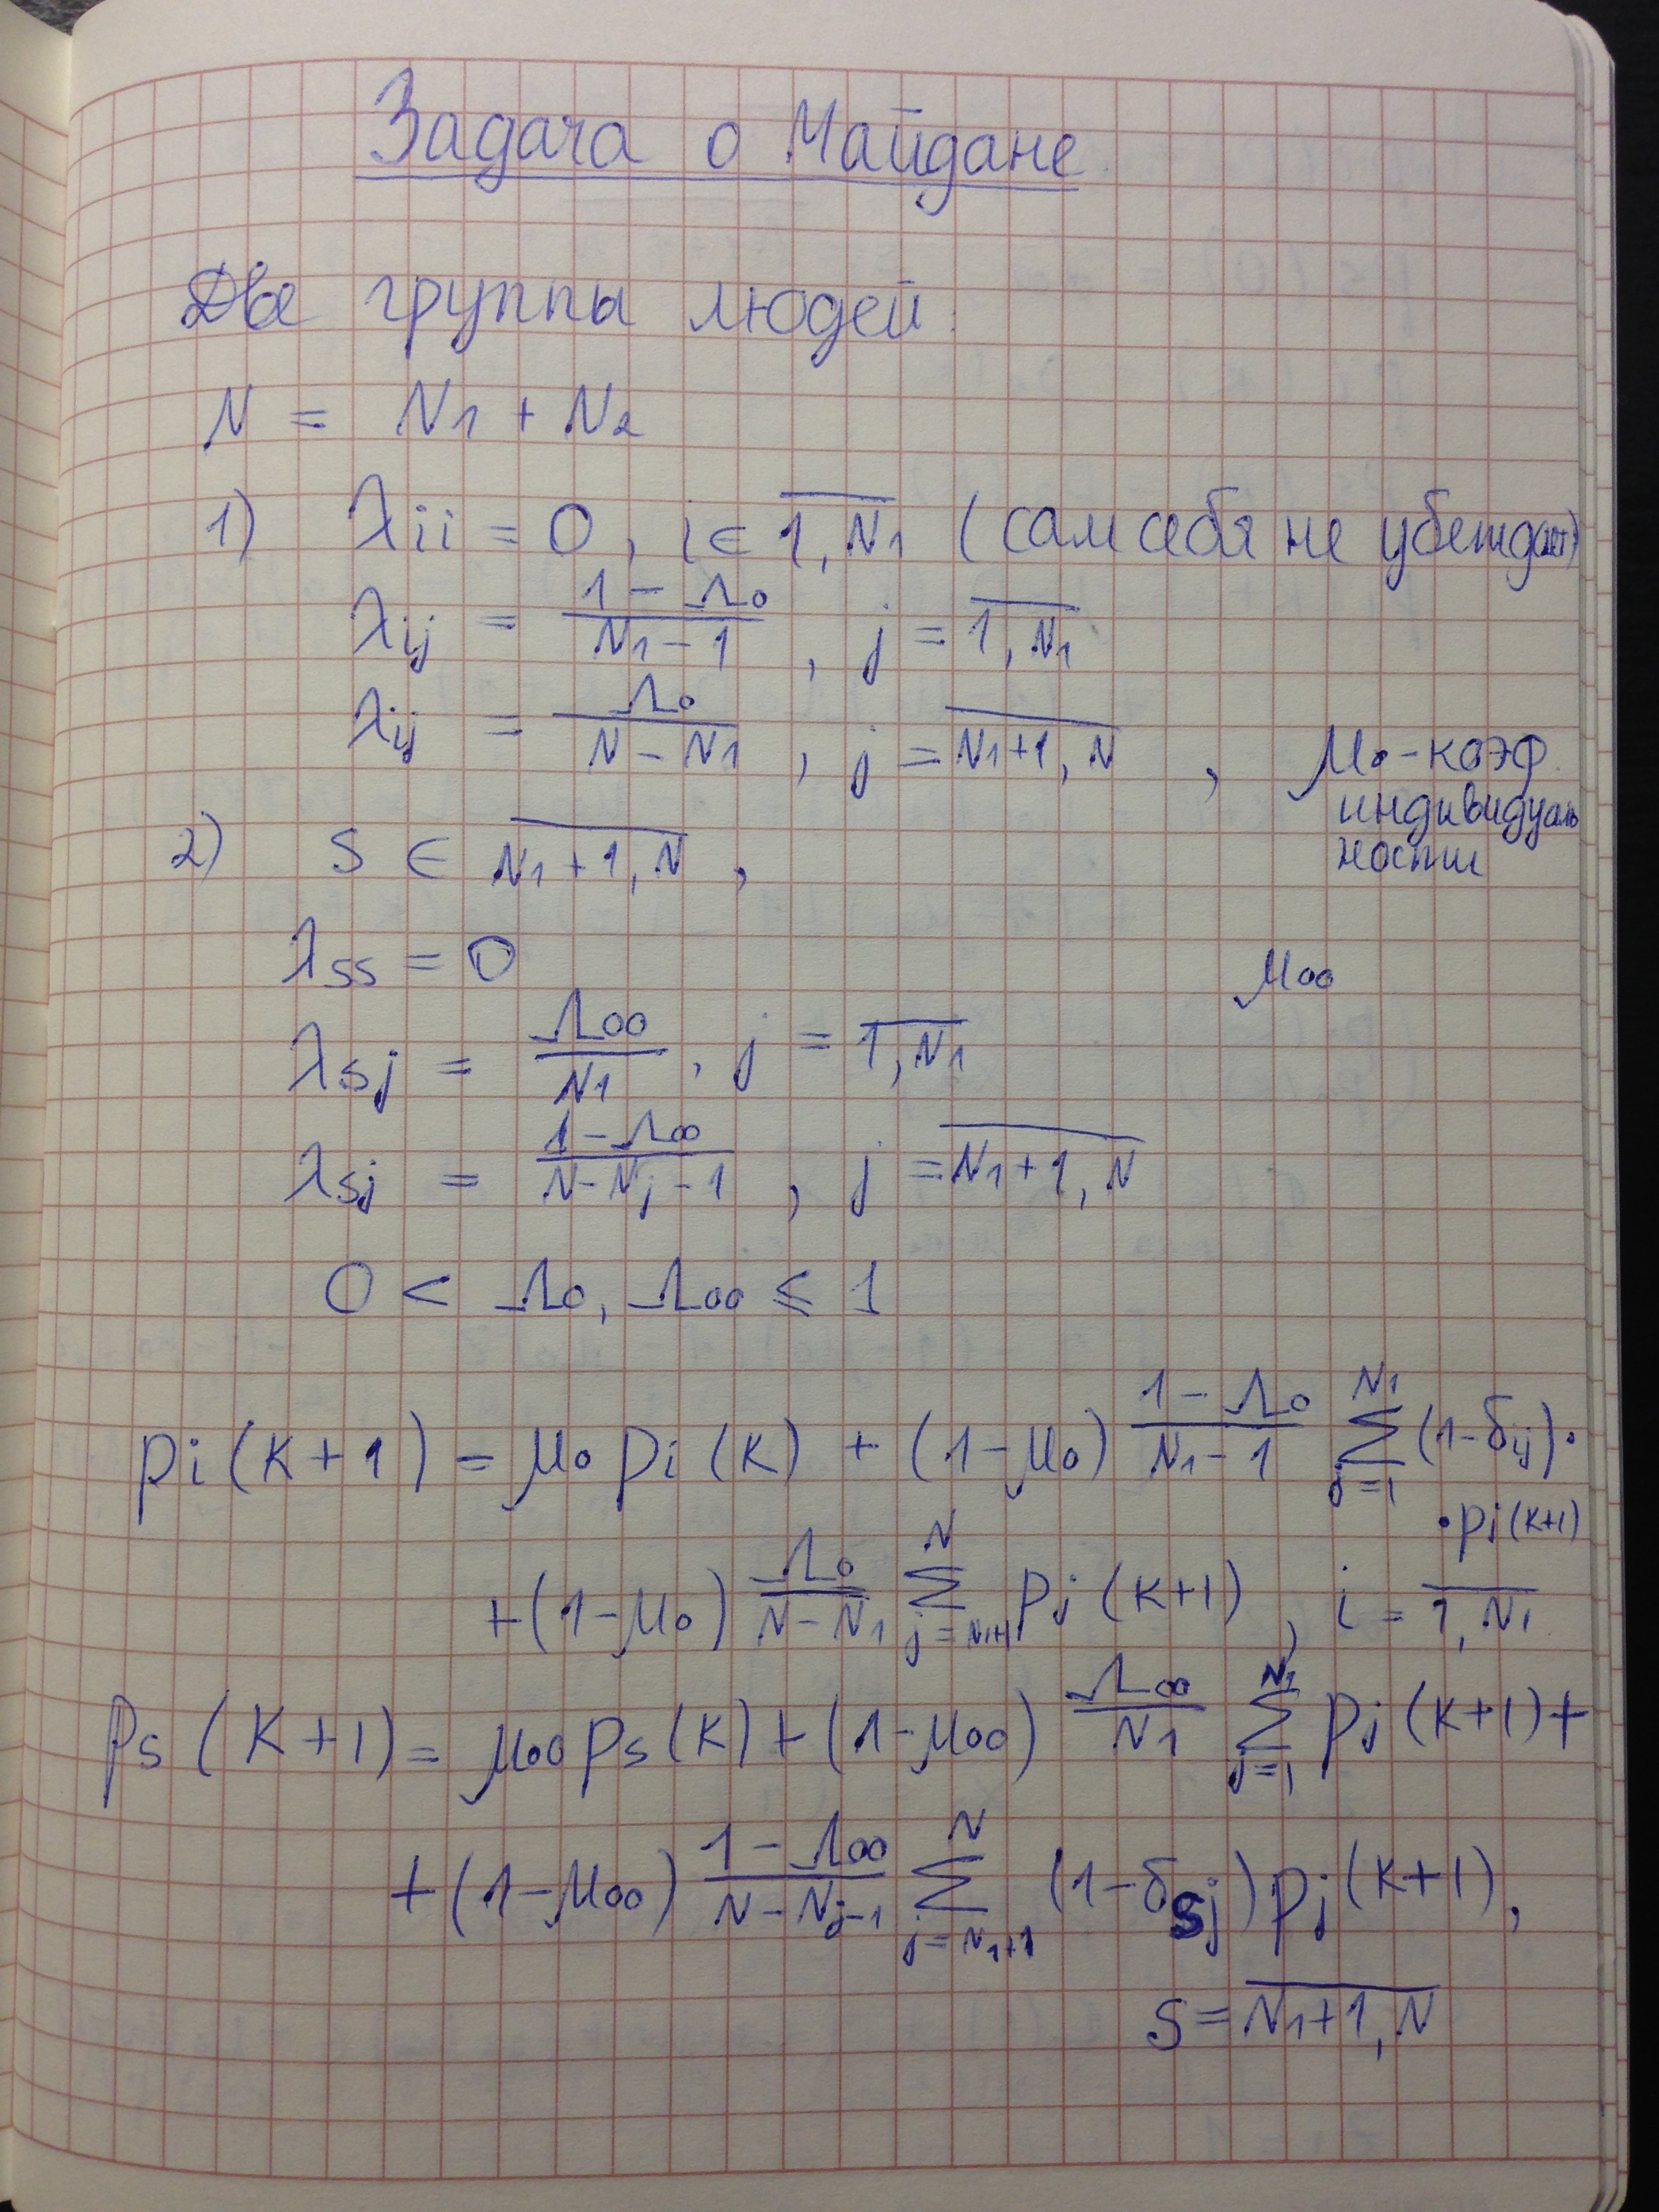 Задача о Майдане
Две группы людей:
N = N₁ + N₂
1) λii = 0, i ∈ 1, N₁ (сам себя не убеждает)
λij = (1 - Λ₀)/(N₁ - 1), j = 1, N₁
λij = Λ₀/(N - N₁), j = N₁+1, N, μ₀ - коэф.
индивидуаль
ности
2) s ∈ N₁+1, N,
λss = 0
μ₀₀
λsj = Λ₀₀/N₁, j = 1, N₁
λsj = (1 - Λ₀₀)/(N - Nj - 1), j = N₁+1, N
0 < Λ₀, Λ₀₀ ≤ 1
pi(k+1) = μ₀ pi(k) + (1-μ₀) (1 - Λ₀)/(N₁ - 1) ∑_{j=1}^{N₁} (1-δij)·
·pj(k+1)
+(1-μ₀) Λ₀/(N - N₁) ∑_{j=N₁+1}^{N} pj(k+1), i = 1, N₁
ps(k+1) = μ₀₀ps(k) + (1-μ₀₀) Λ₀₀/N₁ ∑_{j=1}^{N₁} pj(k+1)+
+(1-μ₀₀) (1 - Λ₀₀)/(N - Nj-1) ∑_{j=N₁+1}^{N} (1-δsj)pj(k+1),
s = N₁+1, N